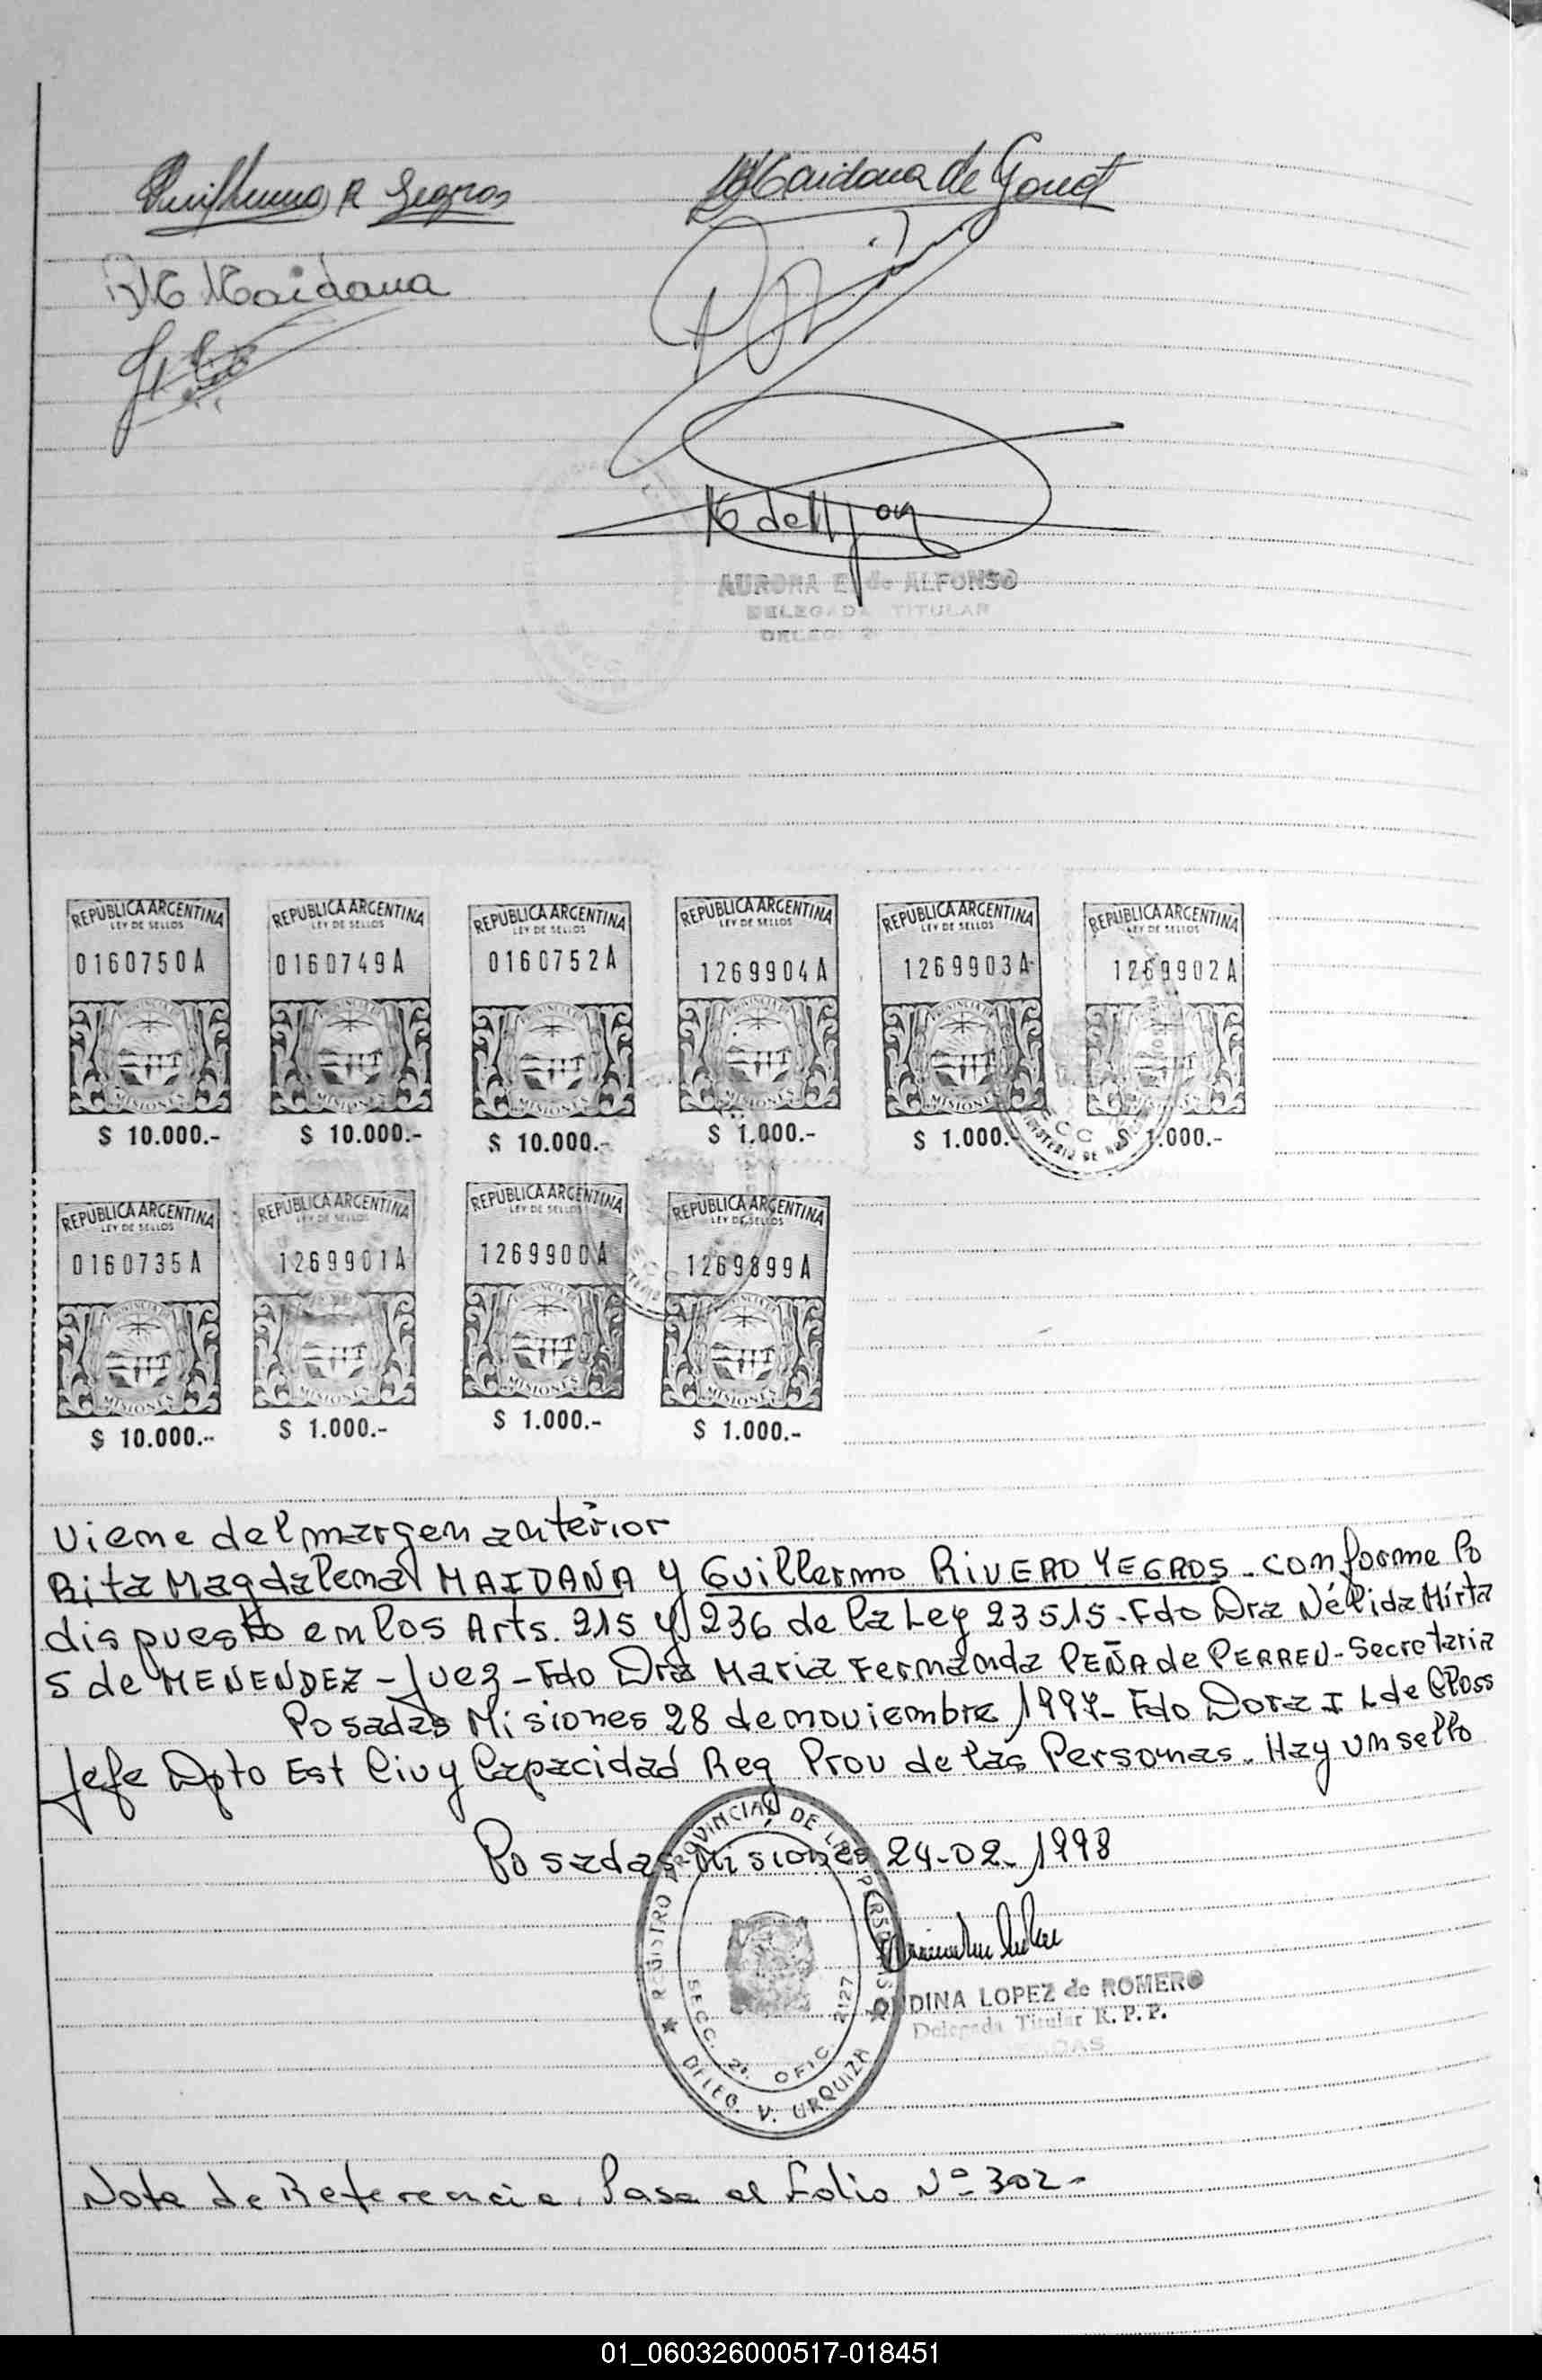 Guillermo R Yegros
Maidana de Gonet
RM Maidana
AURORA E. de ALFONSO
DELEGADA TITULAR
DELEG. 2
REPUBLICA ARGENTINA REPUBLICA ARGENTINA REPUBLICA ARGENTINA REPUBLICA ARGENTINA REPUBLICA ARGENTINA REPUBLICA ARGENTINA
LEY DE SELLOS LEY DE SELLOS LEY DE SELLOS LEY DE SELLOS LEY DE SELLOS LEY DE SELLOS
0160750A 0160749A 0160752A 1269904A 1269903A 1269902A
MISIONES MISIONES MISIONES MISIONES MISIONES MISIONES
$ 10.000.- $ 10.000.- $ 10.000.- $ 1.000.- $ 1.000.- $ 1.000.-
REPUBLICA ARGENTINA REPUBLICA ARGENTINA REPUBLICA ARGENTINA REPUBLICA ARGENTINA
LEY DE SELLOS LEY DE SELLOS LEY DE SELLOS LEY DE SELLOS
0160735A 1269901A 1269900A 1269899A
MISIONES MISIONES MISIONES MISIONES
$ 10.000.- $ 1.000.- $ 1.000.- $ 1.000.-
Viene del margen anterior
Rita Magdalena MAIDANA y Guillermo RIVERO YEGROS - conforme lo
dispuesto en los Arts. 215 y 236 de la Ley 23515 - Fdo Dra Nélida Mirta
S de MENENDEZ - Juez - Fdo Dra Maria Fernanda PEÑA de PERREN - Secretaria
Posadas Misiones 28 de noviembre 1997 - Fdo Dora I L de Cposs
Jefe Dpto Est Civ y Capacidad Reg Prov de las Personas. Hay un sello
Posadas Misiones 24-02-1998
REGISTRO PROVINCIAL DE LAS PERSONAS
SECC. 2a. OFIC. 2127
DELEG. V. URQUIZA
ONDINA LOPEZ de ROMERO
Delegada Titular R.P.P.
Nota de Referencia. Pasa al Folio Nº 302-
01_060326000517-018451